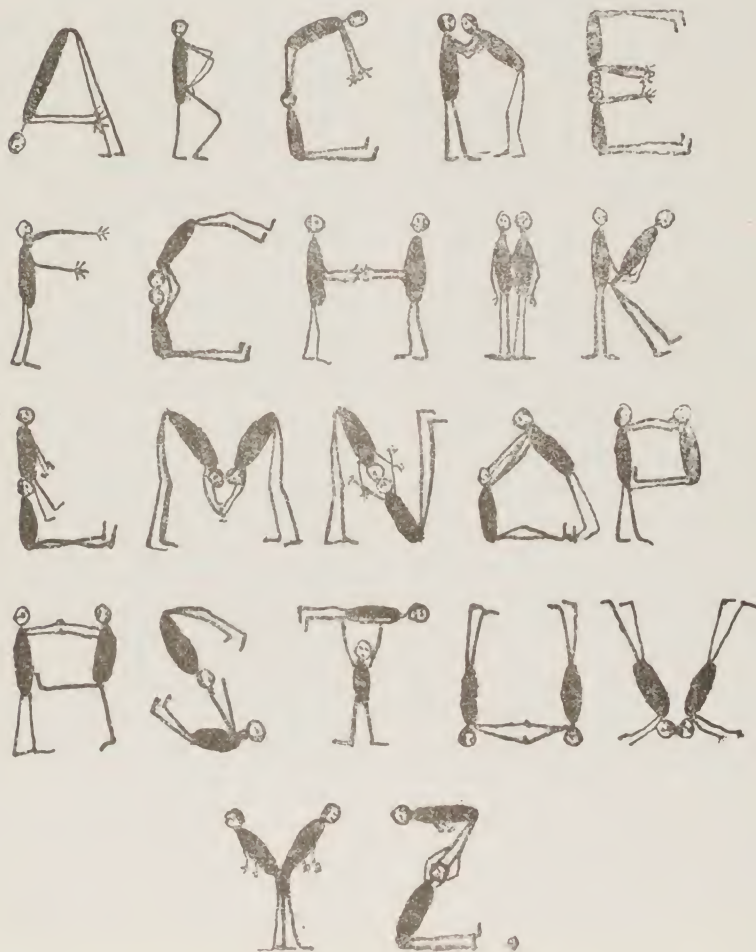 A B C D E
F G H I K
L M N O P
R S T U V
Y Z.